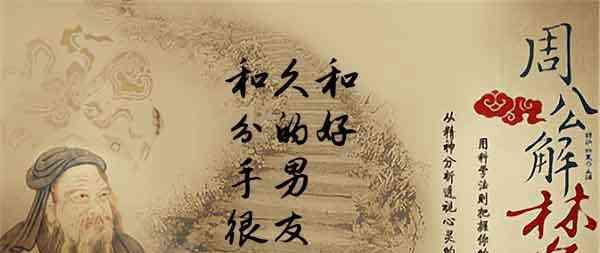 和分手很
久的男友
和好
周公解梦
用科学法则把握你的
从精神分析透视心灵的